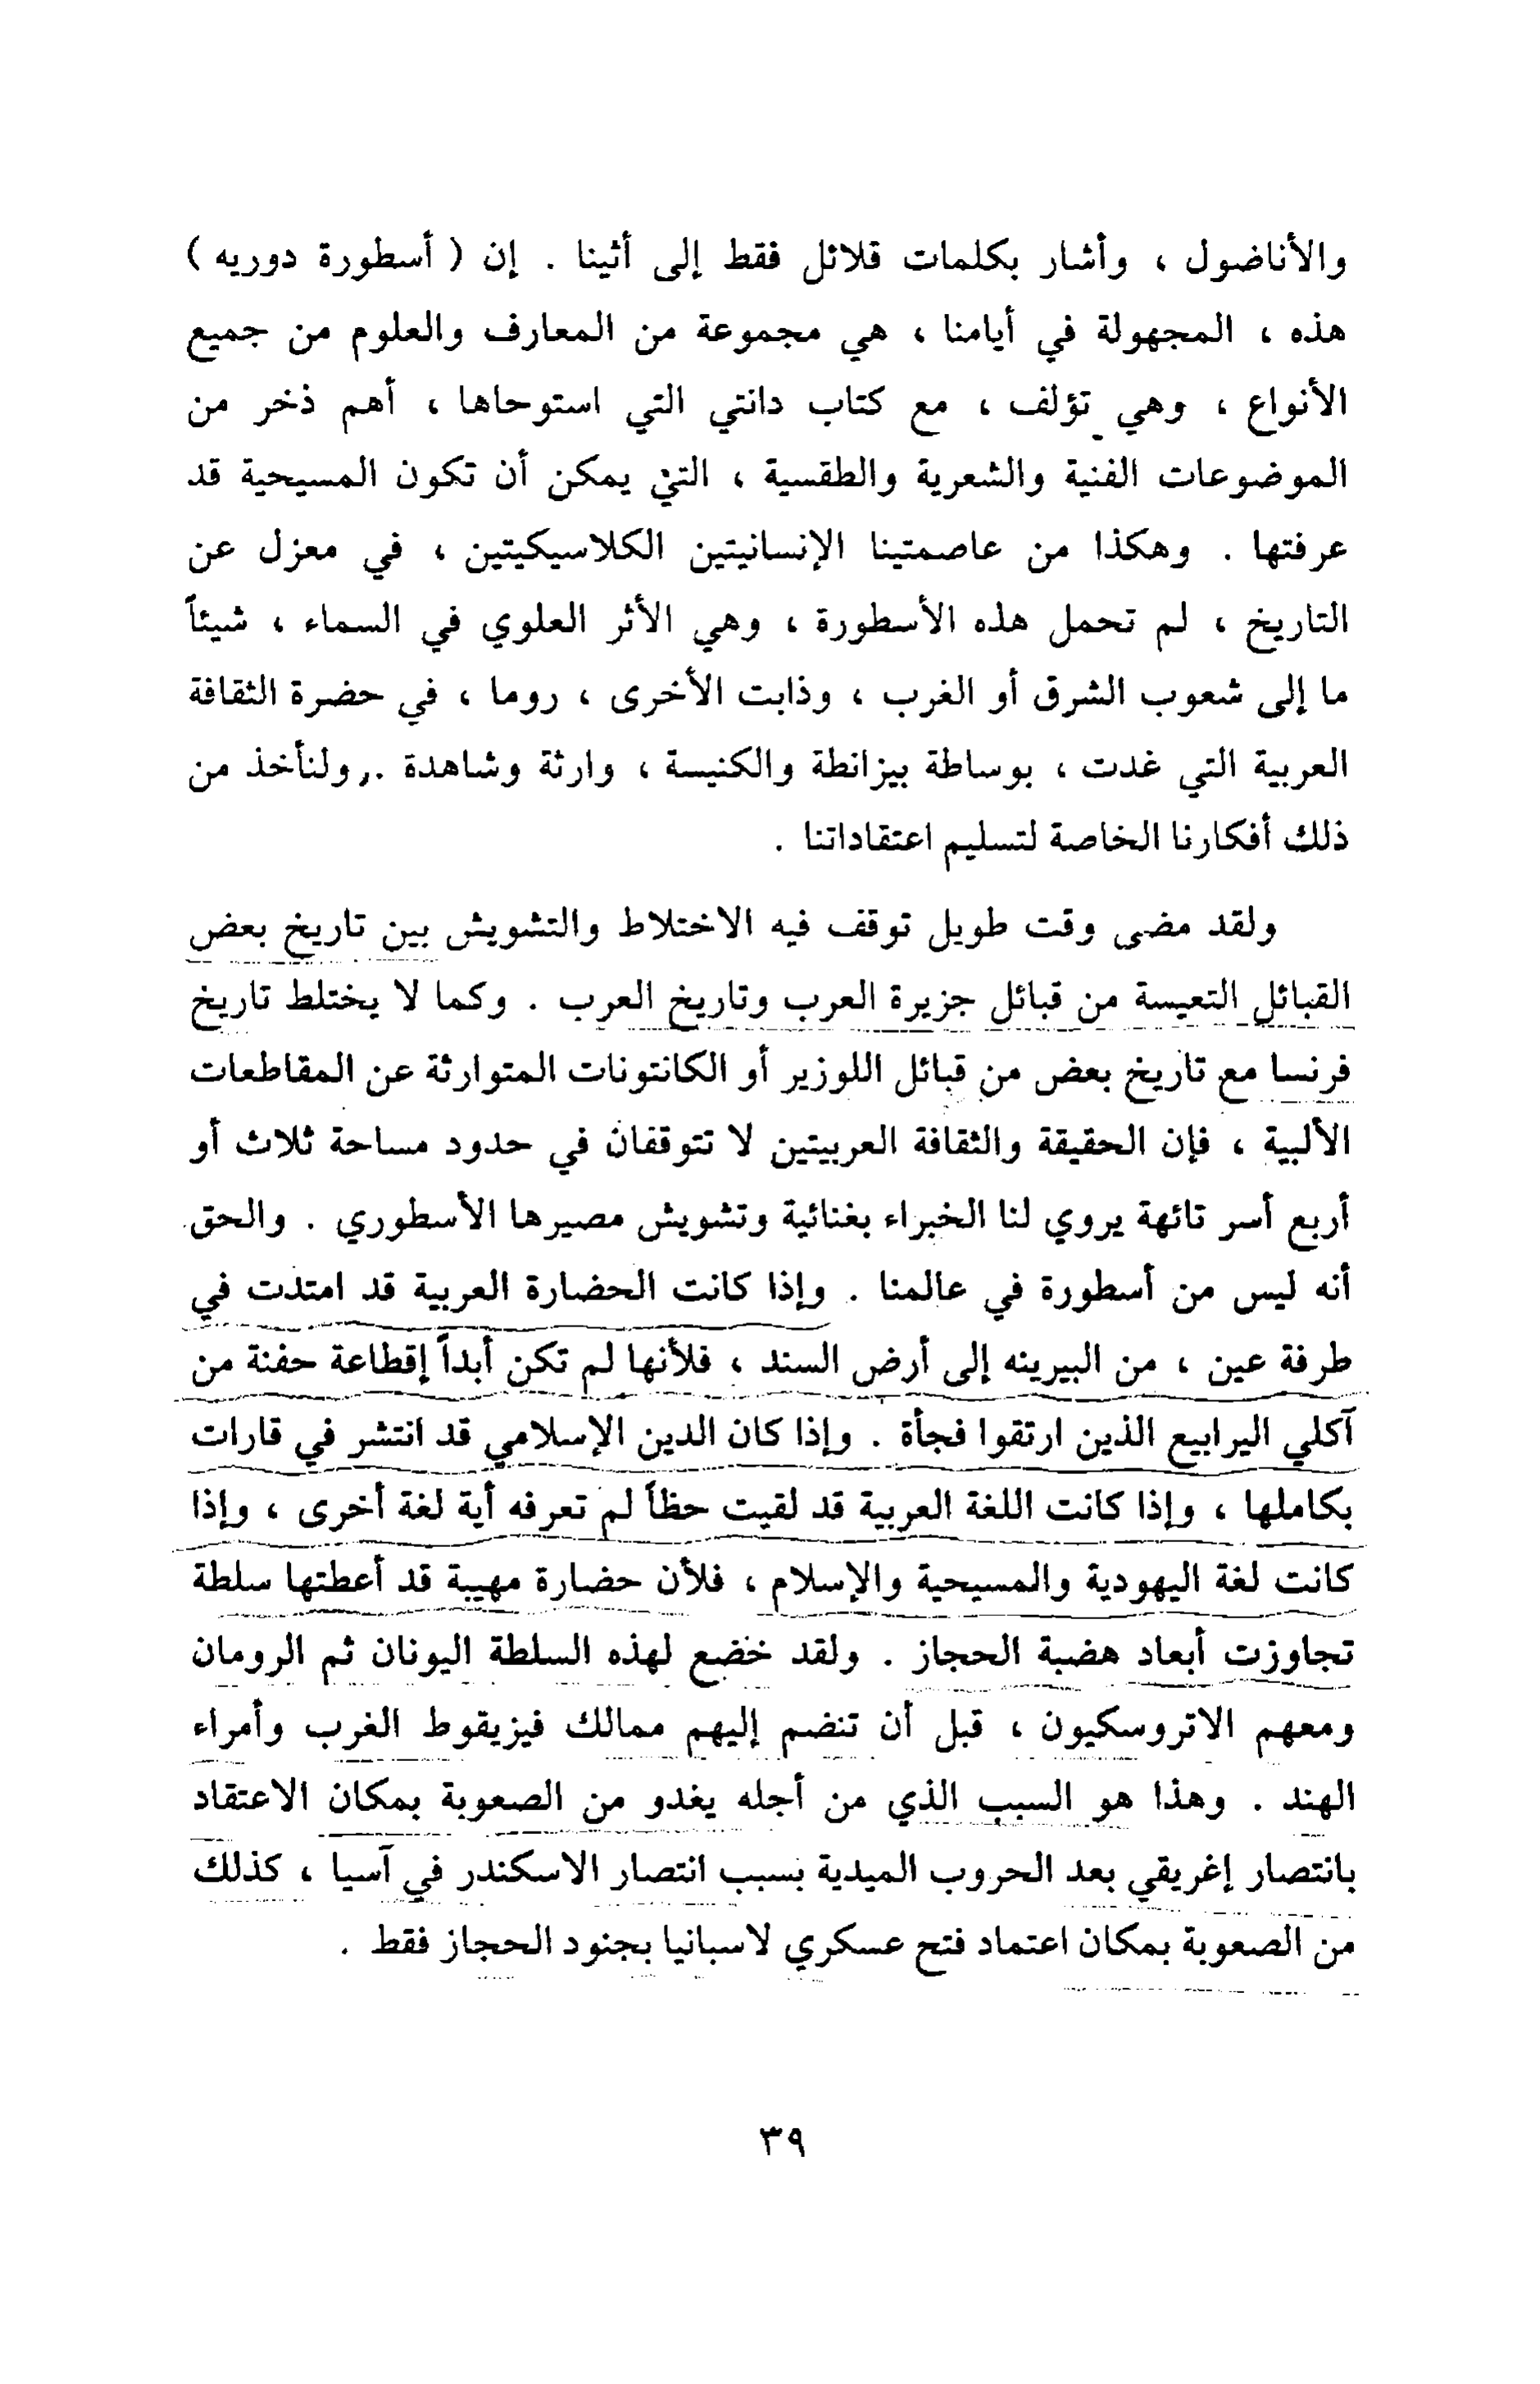 والأناضول ، وأشار بكلمات قلائل فقط إلى أثينا . إن ( أسطورة دوريه )
هذه ، المجهولة في أيامنا ، هي مجموعة من المعارف والعلوم من جميع
الأنواع ، وهي تؤلف ، مع كتاب دانتي التي استوحاها ، أهم ذخر من
الموضوعات الفنية والشعرية والطقسية ، التي يمكن أن تكون المسيحية قد
عرفتها . وهكذا من عاصمتينا الإنسانيتين الكلاسيكيتين ، في معزل عن
التاريخ ، لم تحمل هذه الأسطورة ، وهي الأثر العلوي في السماء ، شيئاً
ما إلى شعوب الشرق أو الغرب ، وذابت الأخرى ، روما ، في حضرة الثقافة
العربية التي غدت ، بوساطة بيزانطة والكنيسة ، وارثة وشاهدة . ولنأخذ من
ذلك أفكارنا الخاصة لتسليم اعتقاداتنا .
ولقد مضى وقت طويل توقف فيه الاختلاط والتشويش بين تاريخ بعض
القبائل التعيسة من قبائل جزيرة العرب وتاريخ العرب . وكما لا يختلط تاريخ
فرنسا مع تاريخ بعض من قبائل اللوزير أو الكانتونات المتوارثة عن المقاطعات
الألبية ، فإن الحقيقة والثقافة العربيتين لا تتوقفان في حدود مساحة ثلاث أو
أربع أسر تائهة يروي لنا الخبراء بغنائية وتشويش مصيرها الأسطوري . والحق
أنه ليس من أسطورة في عالمنا . وإذا كانت الحضارة العربية قد امتدت في
طرفة عين ، من البيرينه إلى أرض السند ، فلأنها لم تكن أبداً إقطاعة حفنة من
آكلي اليرابيع الذين ارتقوا فجأة . وإذا كان الدين الإسلامي قد انتشر في قارات
بكاملها ، وإذا كانت اللغة العربية قد لقيت حظاً لم تعرفه أية لغة أخرى ، وإذا
كانت لغة اليهودية والمسيحية والإسلام ، فلأن حضارة مهيبة قد أعطتها سلطة
تجاوزت أبعاد هضبة الحجاز . ولقد خضع لهذه السلطة اليونان ثم الرومان
ومعهم الاتروسكيون ، قبل أن تنضم إليهم ممالك فيزيقوط الغرب وأمراء
الهند . وهذا هو السبب الذي من أجله يغدو من الصعوبة بمكان الاعتقاد
بانتصار إغريقي بعد الحروب الميدية بسبب انتصار الاسكندر في آسيا ، كذلك
من الصعوبة بمكان اعتماد فتح عسكري لاسبانيا بجنود الحجاز فقط .
٣٩